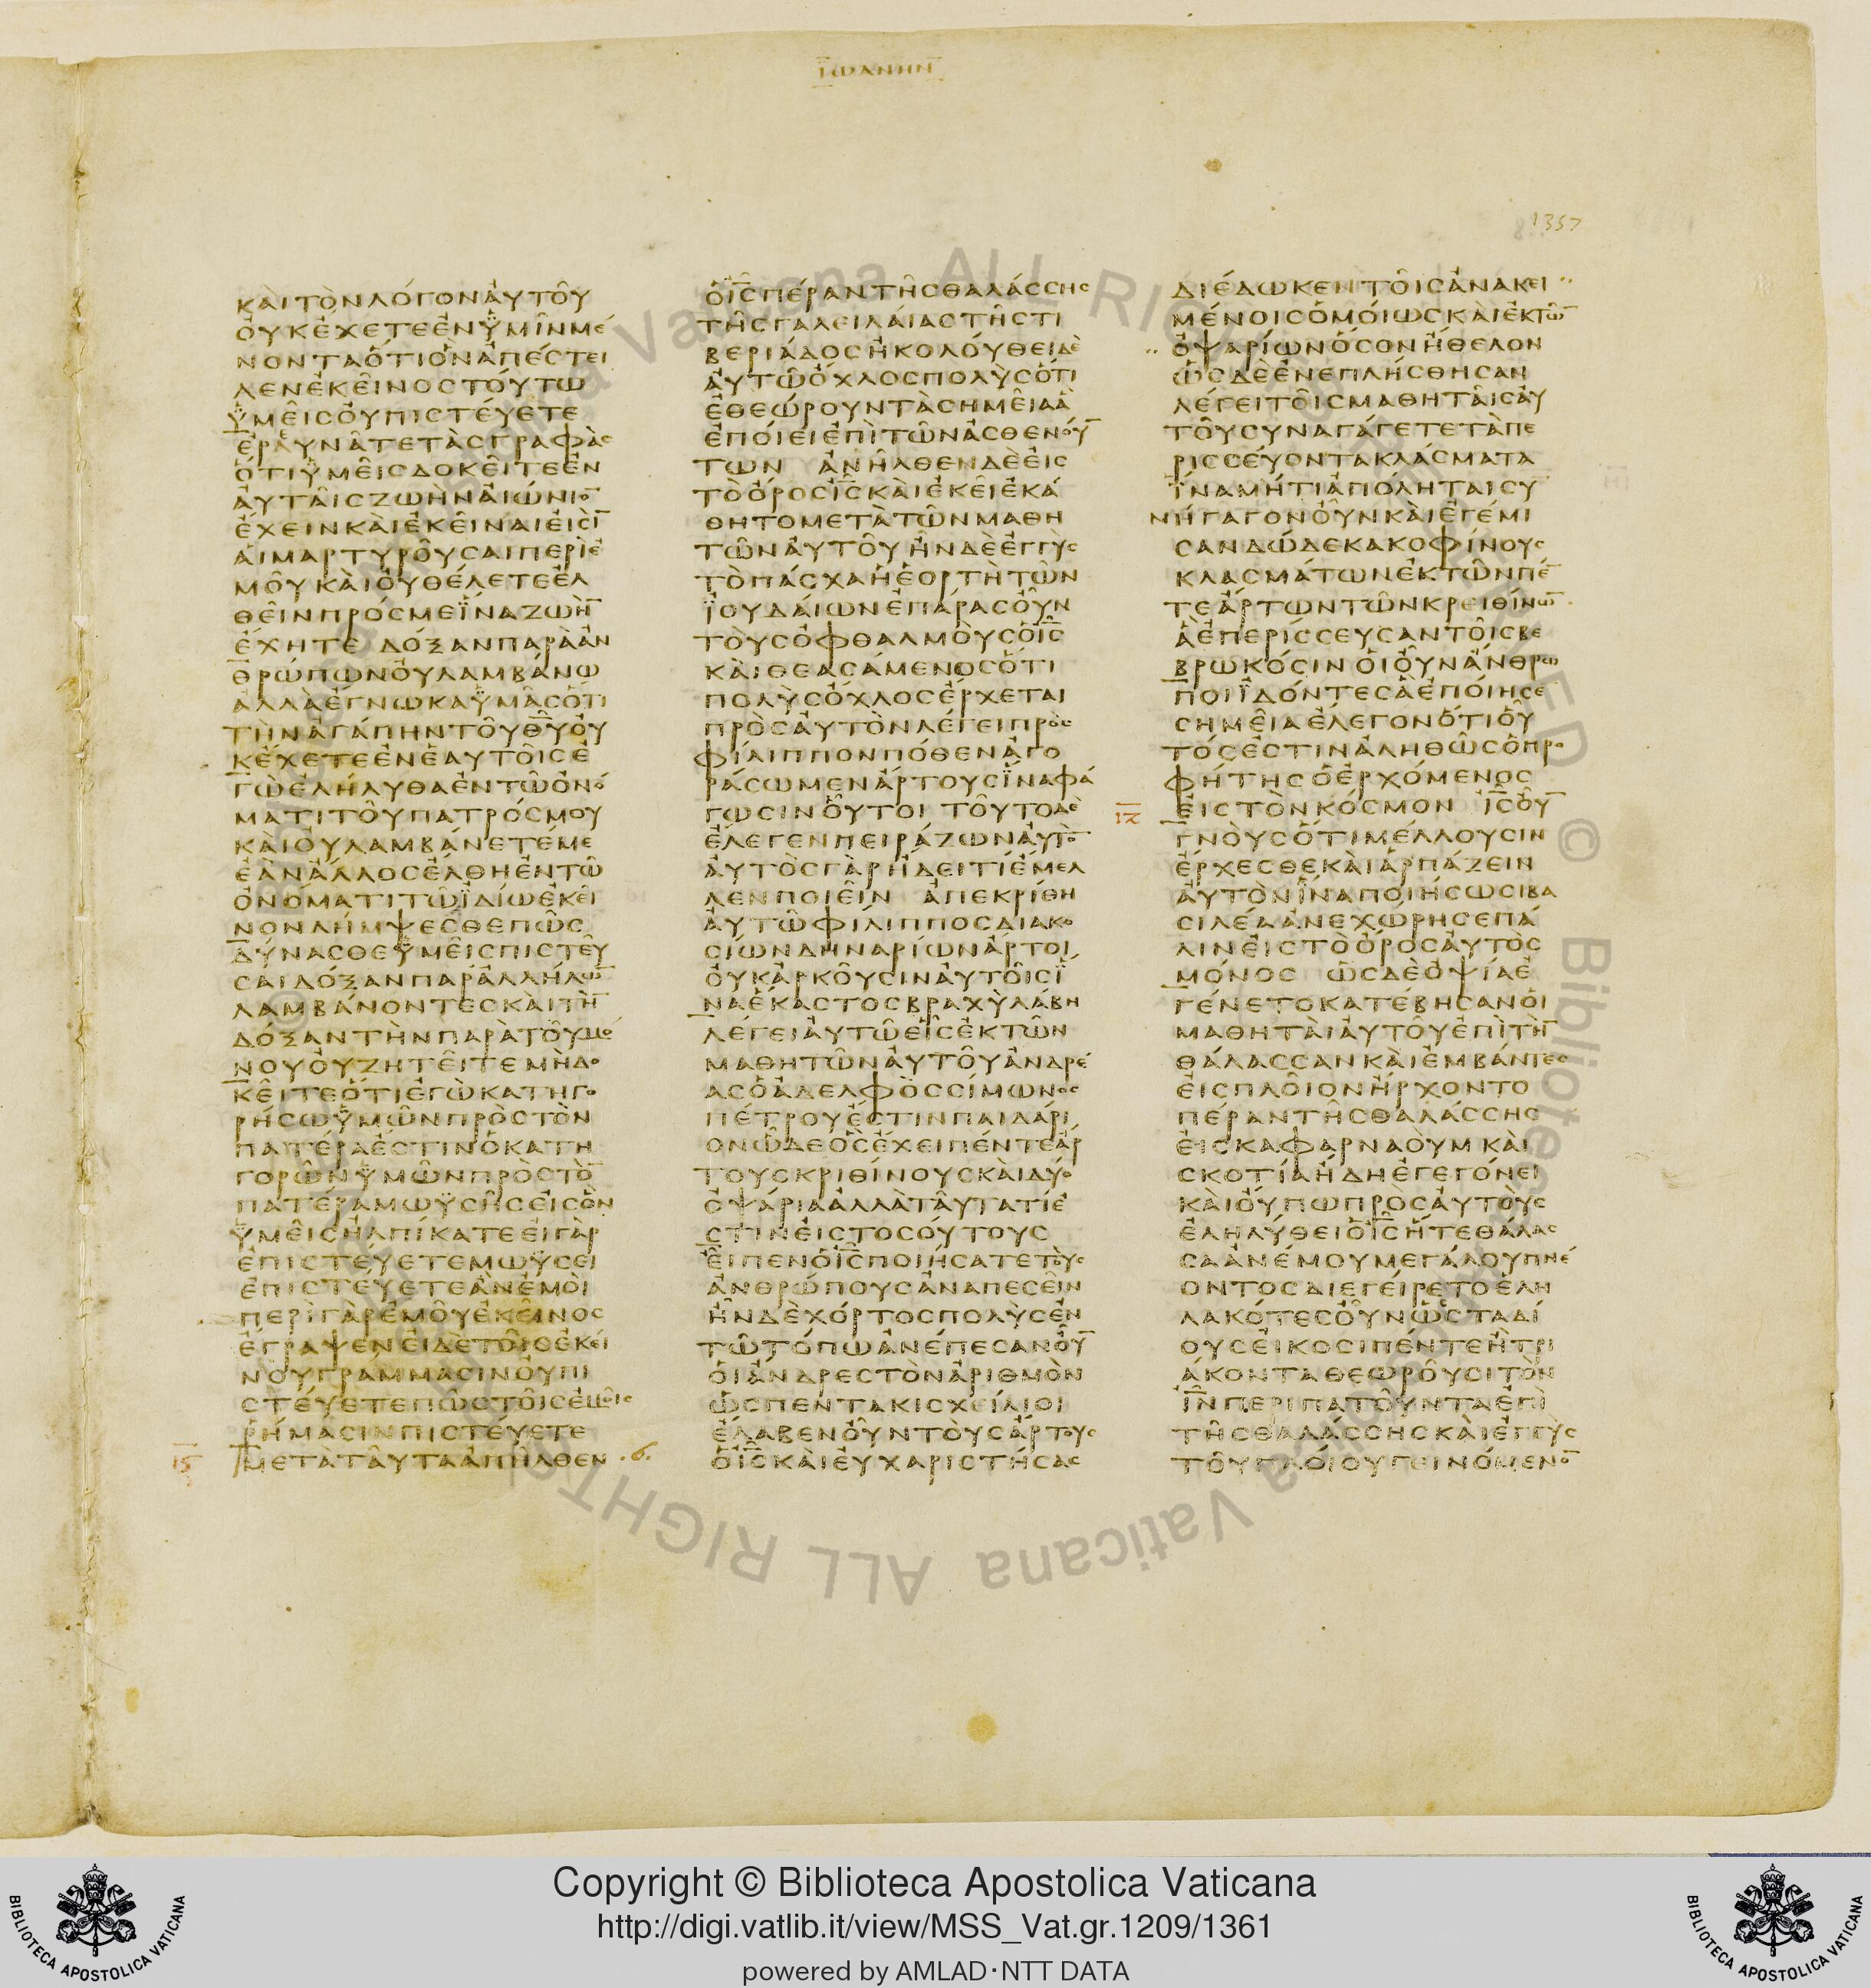 ΙΩΑΝΗΝ
1357
ΚΑΙΤΟΝΛΟΓΟΝΑΥΤΟΥ
ΟΥΚΕΧΕΤΕΕΝΫΜΙΝΜΕ
ΝΟΝΤΑΟΤΙΟΝΑΠΕΣΤΕΙ
ΛΕΝΕΚΕΙΝΟΣΤΟΥΤΩ
ΫΜΕΙΣΟΥΠΙΣΤΕΥΕΤΕ
ΕΡΑΥΝΑΤΕΤΑΣΓΡΑΦΑΣ
ΟΤΙΫΜΕΙΣΔΟΚΕΙΤΕΕΝ
ΑΥΤΑΙΣΖΩΗΝΑΙΩΝΙΟ̅
ΕΧΕΙΝΚΑΙΕΚΕΙΝΑΙΕΙΣΙ̅
ΑΙΜΑΡΤΥΡΟΥΣΑΙΠΕΡΙΕ
ΜΟΥΚΑΙΟΥΘΕΛΕΤΕΕΛ
ΘΕΙΝΠΡΟΣΜΕΪΝΑΖΩΗ̅
ΕΧΗΤΕ ΔΟΞΑΝΠΑΡΑΑΝ
ΘΡΩΠΩΝΟΥΛΑΜΒΑΝΩ
ΑΛΛΑΕΓΝΩΚΑΫΜΑΣΟΤΙ
ΤΗΝΑΓΑΠΗΝΤΟΥΘ̅Υ̅ΟΥ
ΚΕΧΕΤΕΕΝΕΑΥΤΟΙΣΕ
ΓΩΕΛΗΛΥΘΑΕΝΤΩΟΝΟ
ΜΑΤΙΤΟΥΠΑΤΡΟΣΜΟΥ
ΚΑΙΟΥΛΑΜΒΑΝΕΤΕΜΕ
ΕΑΝΑΛΛΟΣΕΛΘΗΕΝΤΩ
ΟΝΟΜΑΤΙΤΩΪΔΙΩΕΚΕΙ
ΝΟΝΛΗΜΨΕΣΘΕΠΩΣ
ΔΥΝΑΣΘΕΫΜΕΙΣΠΙΣΤΕΥ
ΣΑΙΔΟΞΑΝΠΑΡΑΛΛΗΛΩ̅
ΛΑΜΒΑΝΟΝΤΕΣΚΑΙΤΗ̅
ΔΟΞΑΝΤΗΝΠΑΡΑΤΟΥΜΟ
ΝΟΥΟΥΖΗΤΕΙΤΕΜΗΔΟ
ΚΕΙΤΕΟΤΙΕΓΩΚΑΤΗΓΟ
ΡΗΣΩΫΜΩΝΠΡΟΣΤΟΝ
ΠΑΤΕΡΑΕΣΤΙΝΟΚΑΤΗ
ΓΟΡΩΝΫΜΩΝΠΡΟΣΤΟ̅
ΠΑΤΕΡΑΜΩΫΣΗΣΕΙΣΟΝ
ΫΜΕΙΣΗΛΠΙΚΑΤΕΕΙΓΑΡ
ΕΠΙΣΤΕΥΕΤΕΜΩΫΣΕΙ
ΕΠΙΣΤΕΥΕΤΕΑΝΕΜΟΙ
ΠΕΡΙΓΑΡΕΜΟΥΕΚΕΙΝΟΣ
ΕΓΡΑΨΕΝΕΙΔΕΤΟΙΣΕΚΕΙ
ΝΟΥΓΡΑΜΜΑΣΙΝΟΥΠΙ
ΣΤΕΥΕΤΕΠΩΣΤΟΙΣΕΜΟΙΣ
ΡΗΜΑΣΙΝΠΙΣΤΕΥΕΤΕ
Ι̅Ϛ̅ ΜΕΤΑΤΑΥΤΑΑΠΗΛΘΕΝ .6.
ΟΙ̅Σ̅ΠΕΡΑΝΤΗΣΘΑΛΑΣΣΗΣ
ΤΗΣΓΑΛΕΙΛΑΙΑΣΤΗΣΤΙ
ΒΕΡΙΑΔΟΣΗΚΟΛΟΥΘΕΙΔΕ
ΑΥΤΩΟΧΛΟΣΠΟΛΥΣΟΤΙ
ΕΘΕΩΡΟΥΝΤΑΣΗΜΕΙΑΑ
ΕΠΟΙΕΙΕΠΙΤΩΝΑΣΘΕΝΟΥ̅
ΤΩΝ ΑΝΗΛΘΕΝΔΕΕΙΣ
ΤΟΟΡΟΣΙ̅Σ̅ΚΑΙΕΚΕΙΕΚΑ
ΘΗΤΟΜΕΤΑΤΩΝΜΑΘΗ
ΤΩΝΑΥΤΟΥ ΗΝΔΕΕΓΓΥΣ
ΤΟΠΑΣΧΑΗΕΟΡΤΗΤΩΝ
ΪΟΥΔΑΙΩΝΕΠΑΡΑΣΟΥΝ
ΤΟΥΣΟΦΘΑΛΜΟΥΣΟΙ̅Σ̅
ΚΑΙΘΕΑΣΑΜΕΝΟΣΟΤΙ
ΠΟΛΥΣΟΧΛΟΣΕΡΧΕΤΑΙ
ΠΡΟΣΑΥΤΟΝΛΕΓΕΙΠΡΟΣ
ΦΙΛΙΠΠΟΝΠΟΘΕΝΑΓΟ
ΡΑΣΩΜΕΝΑΡΤΟΥΣΪΝΑΦΑ
ΓΩΣΙΝΟΥΤΟΙ ΤΟΥΤΟΔΕ
ΕΛΕΓΕΝΠΕΙΡΑΖΩΝΑΥΤΟ̅
ΑΥΤΟΣΓΑΡΗΔΕΙΤΙΕΜΕΛ
ΛΕΝΠΟΙΕΙΝ ΑΠΕΚΡΙΘΗ
ΑΥΤΩΦΙΛΙΠΠΟΣΔΙΑΚΟ
ΣΙΩΝΔΗΝΑΡΙΩΝΑΡΤΟΙ
ΟΥΚΑΡΚΟΥΣΙΝΑΥΤΟΙΣΪ
ΝΑΕΚΑΣΤΟΣΒΡΑΧΥΛΑΒΗ
ΛΕΓΕΙΑΥΤΩΕΙΣΕΚΤΩΝ
ΜΑΘΗΤΩΝΑΥΤΟΥΑΝΔΡΕ
ΑΣΟΑΔΕΛΦΟΣΣΙΜΩΝΟΣ
ΠΕΤΡΟΥΕΣΤΙΝΠΑΙΔΑΡΙ
ΟΝΩΔΕΟΣΕΧΕΙΠΕΝΤΕΑΡ
ΤΟΥΣΚΡΙΘΙΝΟΥΣΚΑΙΔΥΟ
ΟΨΑΡΙΑΑΛΛΑΤΑΥΤΑΤΙΕ
ΣΤΙΝΕΙΣΤΟΣΟΥΤΟΥΣ
ΕΙΠΕΝΟΙ̅Σ̅ΠΟΙΗΣΑΤΕΤΟΥΣ
ΑΝΘΡΩΠΟΥΣΑΝΑΠΕΣΕΙΝ
ΗΝΔΕΧΟΡΤΟΣΠΟΛΥΣΕΝ
ΤΩΤΟΠΩΑΝΕΠΕΣΑΝΟΥ̅
ΟΙΑΝΔΡΕΣΤΟΝΑΡΙΘΜΟΝ
ΩΣΠΕΝΤΑΚΙΣΧΕΙΛΙΟΙ
ΕΛΑΒΕΝΟΥΝΤΟΥΣΑΡΤΟΥΣ
ΟΙ̅Σ̅ΚΑΙΕΥΧΑΡΙΣΤΗΣΑΣ
ΔΙΕΔΩΚΕΝΤΟΙΣΑΝΑΚΕΙ
ΜΕΝΟΙΣΟΜΟΙΩΣΚΑΙΕΚΤΩ̅
ΟΨΑΡΙΩΝΟΣΟΝΗΘΕΛΟΝ
ΩΣΔΕΕΝΕΠΛΗΣΘΗΣΑΝ
ΛΕΓΕΙΤΟΙΣΜΑΘΗΤΑΙΣΑΥ
ΤΟΥΣΥΝΑΓΑΓΕΤΕΤΑΠΕ
ΡΙΣΣΕΥΟΝΤΑΚΛΑΣΜΑΤΑ
ΪΝΑΜΗΤΙΑΠΟΛΗΤΑΙΣΥ
ΝΗΓΑΓΟΝΟΥΝΚΑΙΕΓΕΜΙ
ΣΑΝΔΩΔΕΚΑΚΟΦΙΝΟΥΣ
ΚΛΑΣΜΑΤΩΝΕΚΤΩΝΠΕ̅
ΤΕΑΡΤΩΝΤΩΝΚΡΕΙΘΙΝΩ̅
ΑΕΠΕΡΙΣΣΕΥΣΑΝΤΟΙΣΒΕ
ΒΡΩΚΟΣΙΝ ΟΙΟΥΝΑΝΘΡΩ
ΠΟΙΪΔΟΝΤΕΣΑΕΠΟΙΗΣΕ
ΣΗΜΕΙΑΕΛΕΓΟΝΟΤΙΟΥ
ΤΟΣΕΣΤΙΝΑΛΗΘΩΣΟΠΡΟ
ΦΗΤΗΣΟΕΡΧΟΜΕΝΟΣ
Ι̅Ζ̅ ΕΙΣΤΟΝΚΟΣΜΟΝ Ι̅Σ̅ΟΥ̅
ΓΝΟΥΣΟΤΙΜΕΛΛΟΥΣΙΝ
ΕΡΧΕΣΘΕΚΑΙΑΡΠΑΖΕΙΝ
ΑΥΤΟΝΪΝΑΠΟΙΗΣΩΣΙΒΑ
ΣΙΛΕΑΑΝΕΧΩΡΗΣΕΠΑ
ΛΙΝΕΙΣΤΟΟΡΟΣΑΥΤΟΣ
ΜΟΝΟΣ ΩΣΔΕΟΨΙΑΕ
ΓΕΝΕΤΟΚΑΤΕΒΗΣΑΝΟΙ
ΜΑΘΗΤΑΙΑΥΤΟΥΕΠΙΤΗ̅
ΘΑΛΑΣΣΑΝΚΑΙΕΜΒΑΝΤΕΣ
ΕΙΣΠΛΟΙΟΝΗΡΧΟΝΤΟ
ΠΕΡΑΝΤΗΣΘΑΛΑΣΣΗΣ
ΕΙΣΚΑΦΑΡΝΑΟΥΜ ΚΑΙ
ΣΚΟΤΙΑΗΔΗΕΓΕΓΟΝΕΙ
ΚΑΙΟΥΠΩΠΡΟΣΑΥΤΟΥΣ
ΕΛΗΛΥΘΕΙΟΙ̅Σ̅ΗΤΕΘΑΛΑΣ
ΣΑΑΝΕΜΟΥΜΕΓΑΛΟΥΠΝΕ
ΟΝΤΟΣΔΙΕΓΕΙΡΕΤΟΕΛΗ
ΛΑΚΟΤΕΣΟΥΝΩΣΣΤΑΔΙ
ΟΥΣΕΙΚΟΣΙΠΕΝΤΕΗΤΡΙ
ΑΚΟΝΤΑΘΕΩΡΟΥΣΙΤΟΝ
Ι̅Ν̅ΠΕΡΙΠΑΤΟΥΝΤΑΕΠΙ
ΤΗΣΘΑΛΑΣΣΗΣΚΑΙΕΓΓΥΣ
ΤΟΥΠΛΟΙΟΥΓΕΙΝΟΜΕΝΟ̅
Copyright © Biblioteca Apostolica Vaticana
http://digi.vatlib.it/view/MSS_Vat.gr.1209/1361
powered by AMLAD·NTT DATA
BIBLIOTECA APOSTOLICA VATICANA
BIBLIOTECA APOSTOLICA VATICANA